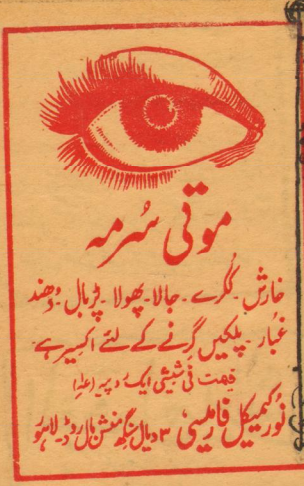 موتی سُرمہ
خارش۔ ککُرے۔ جالا۔ پھولا۔ پڑبال۔ دُھند
غبار۔ پلکیں گِرنے کے لئے اکسیر ہے۔
قیمت فی شیشی ایک روپیہ
نُور کیمیکل فارمیسی ۳ دیال سنگھ منشن مال روڈ۔ لاہور